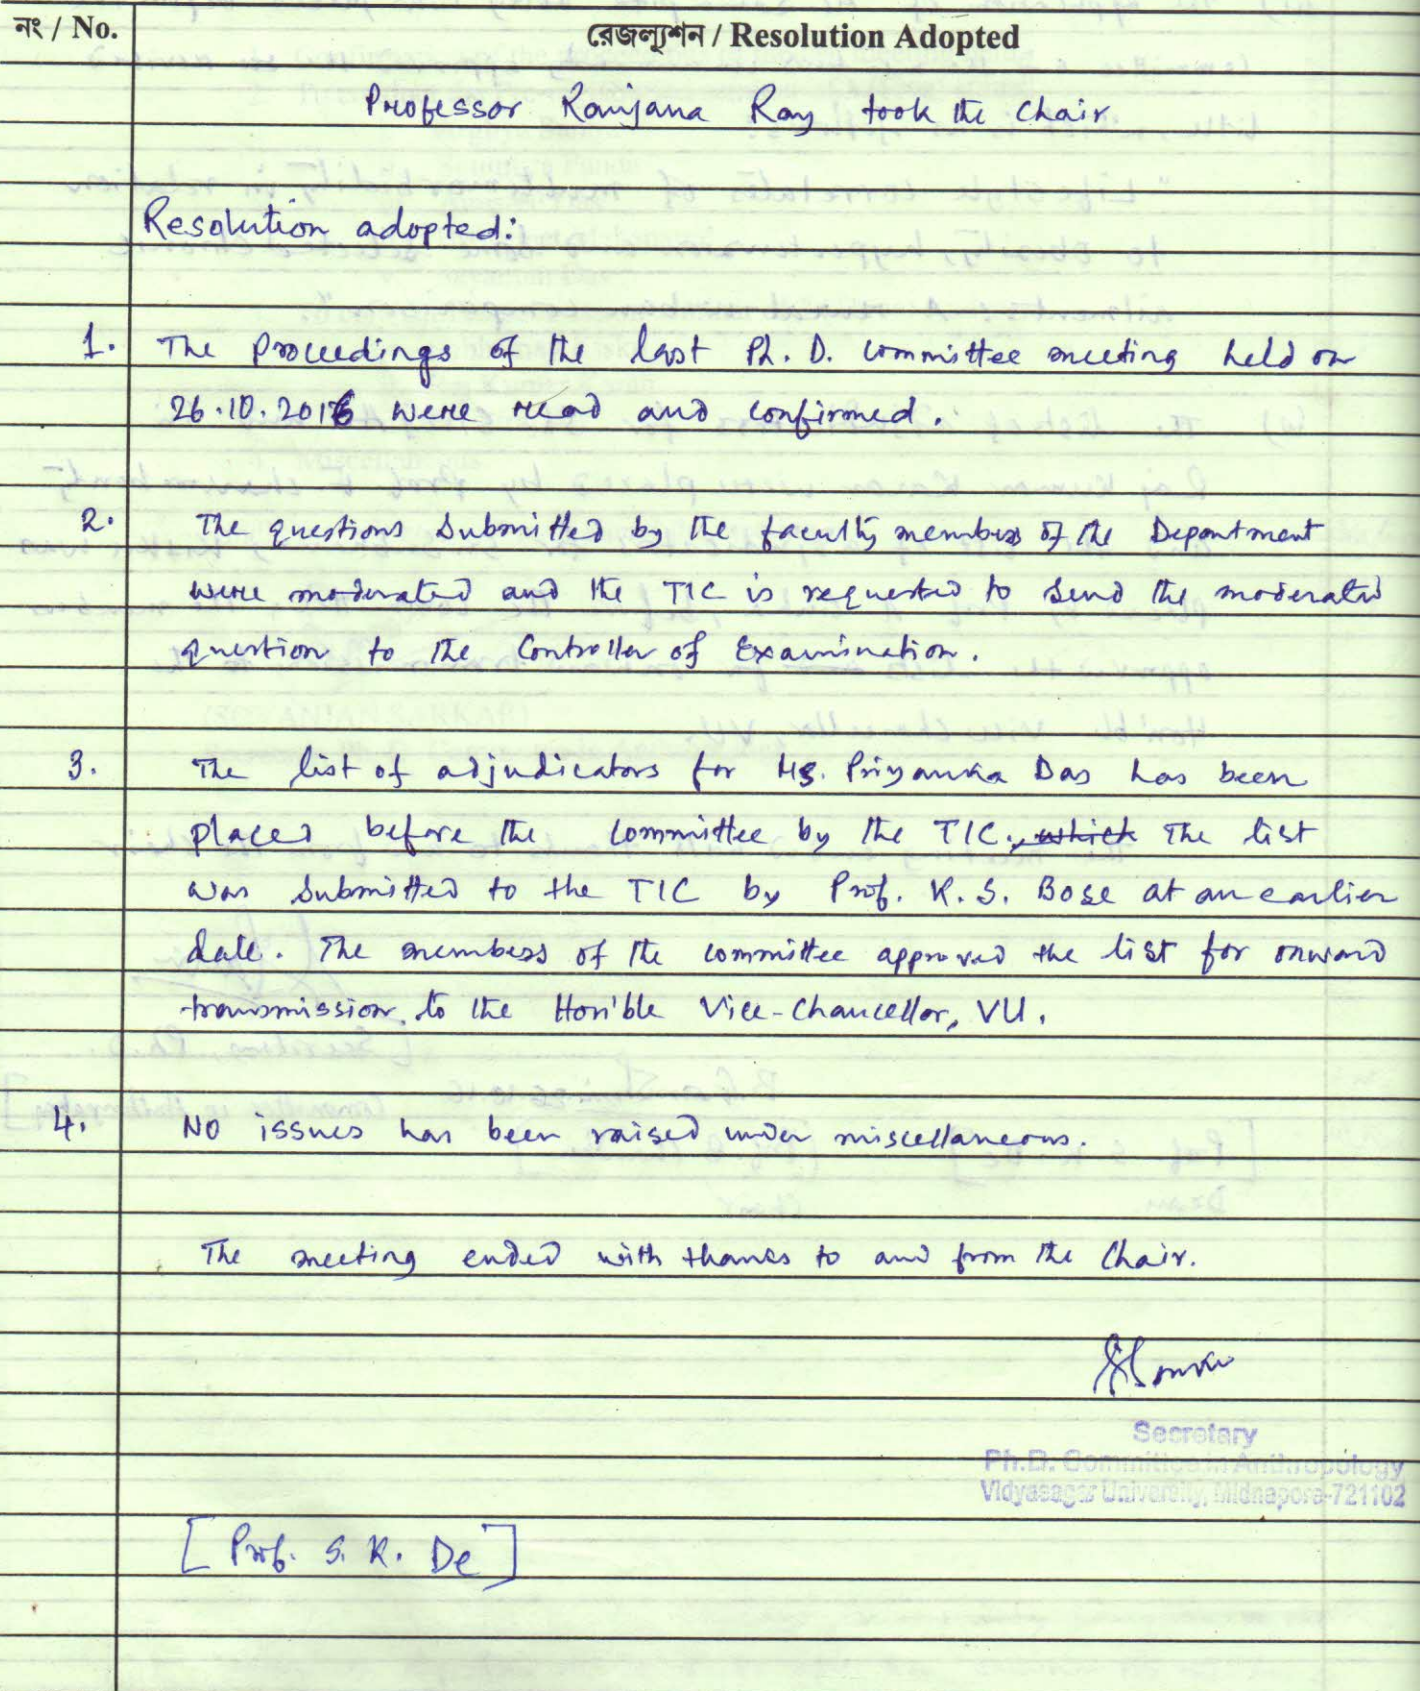 নং / No.
রেজল্যুশন / Resolution Adopted
Professor Ranjana Ray took the Chair
Resolution adopted:
1. The Proceedings of the last Ph. D. Committee meeting held on
26.10.2016 were read and confirmed.
2. The questions submitted by the faculty members of the Department
were moderated and the TIC is requested to send the moderated
question to the Controller of Examination.
3. The list of adjudicators for Ms. Priyanka Das has been
placed before the Committee by the TIC., which The list
was submitted to the TIC by Prof. K. S. Bose at an earlier
date. The members of the committee approved the list for onward
transmission to the Hon'ble Vice-Chancellor, VU.
4. NO issues has been raised under miscellaneous.
The meeting ended with thanks to and from the Chair.
Secretary
Ph.D. Committee in Anthropology
Vidyasagar University, Midnapore-721102
[Prof. S. K. De]